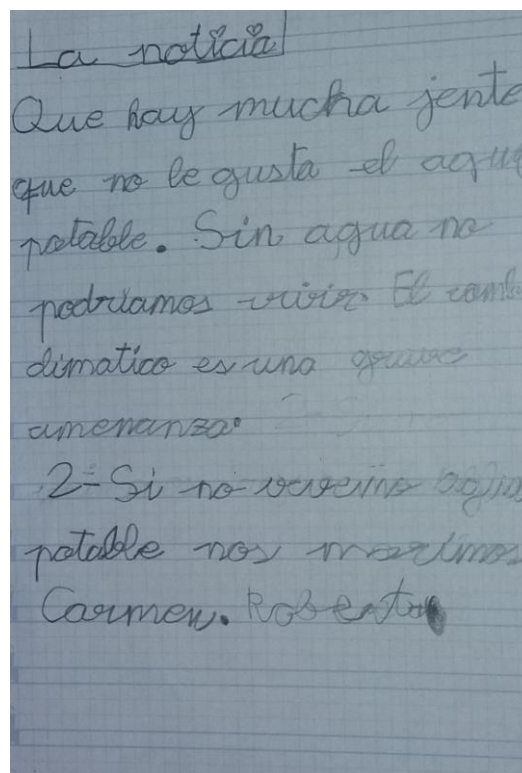 La noticia
Que hay mucha jente
que no le gusta el agua
potable. Sin agua no
podriamos vivir. El camb
climatico es una grave
amenanza.
2- Si no agua
potable nos morimos
Carmen. Roberto